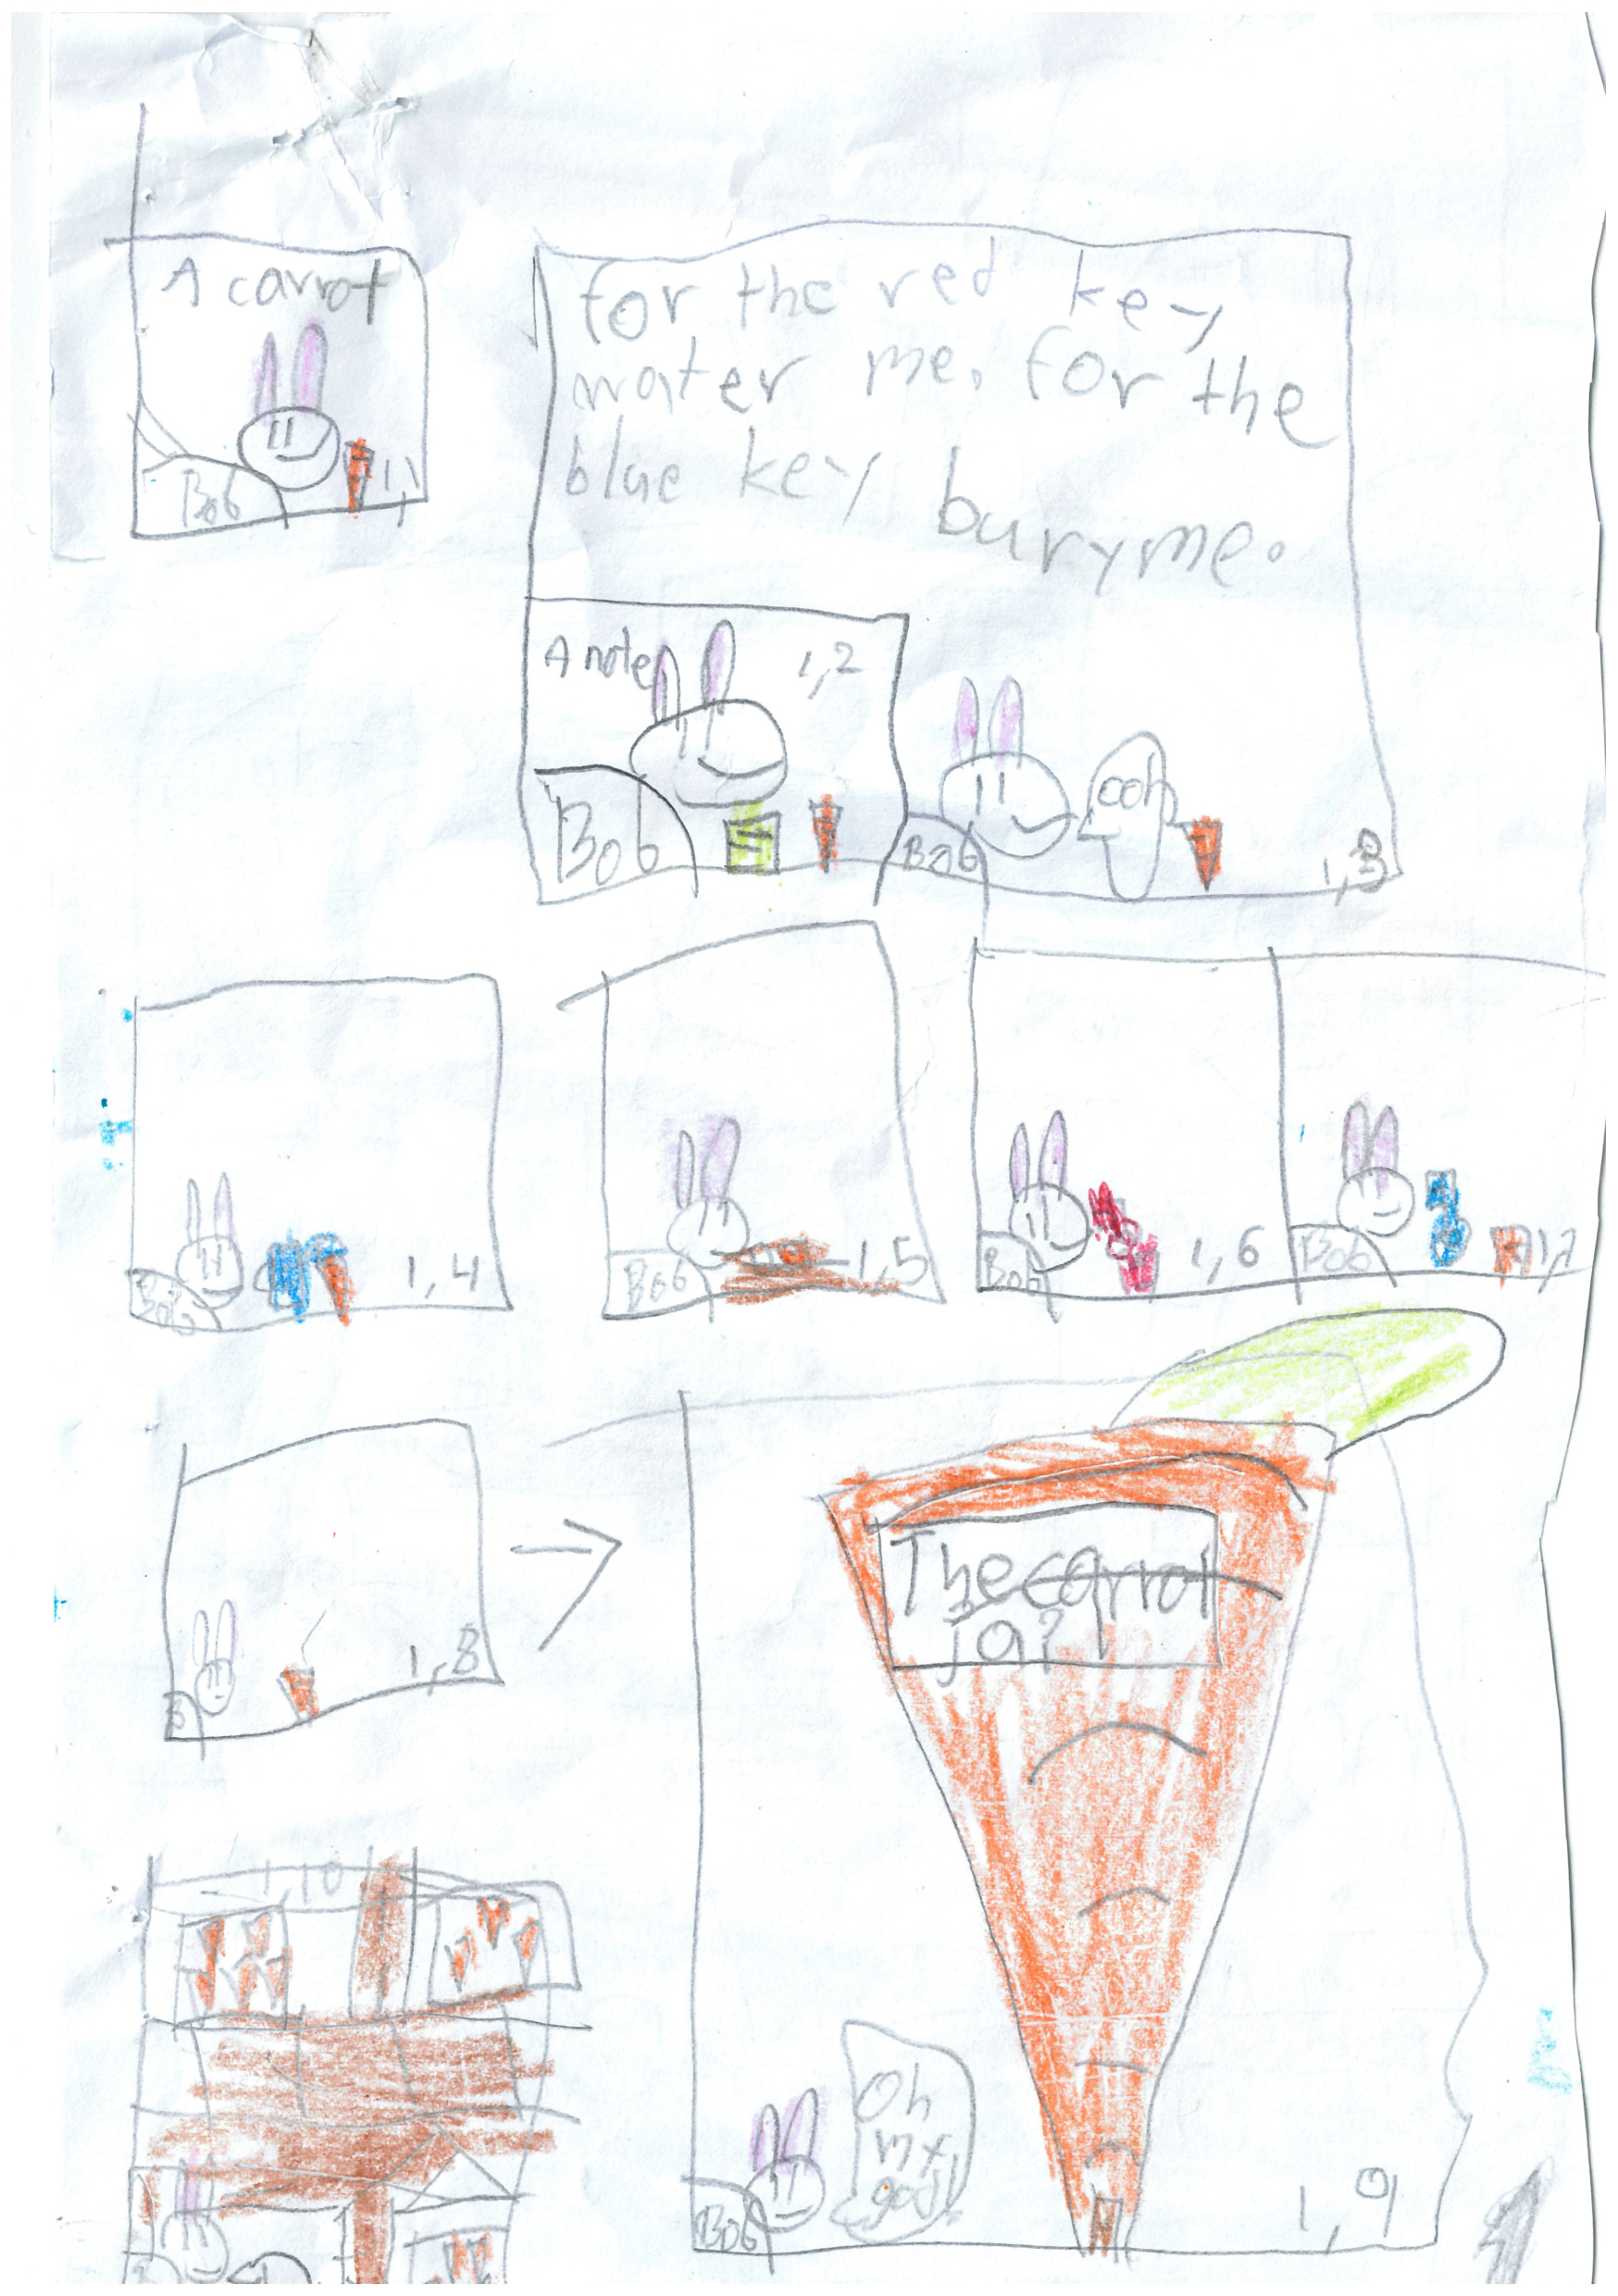 A carrot
Bob
1,1
for the red key
water me. for the
blue key buryme.
A note
1,2
Bob
Bob
ooh
1,3
Bob
1,4
Bob
1,5
Bob
1,6
Bob
1,7
B
1,8
The carrot
jo?
Oh
my
god!
Bob
1,9
1,10
B
1